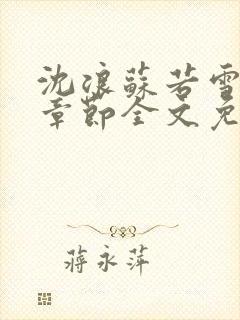 沈浪蘇若雪
章節全文免
蔣永萍